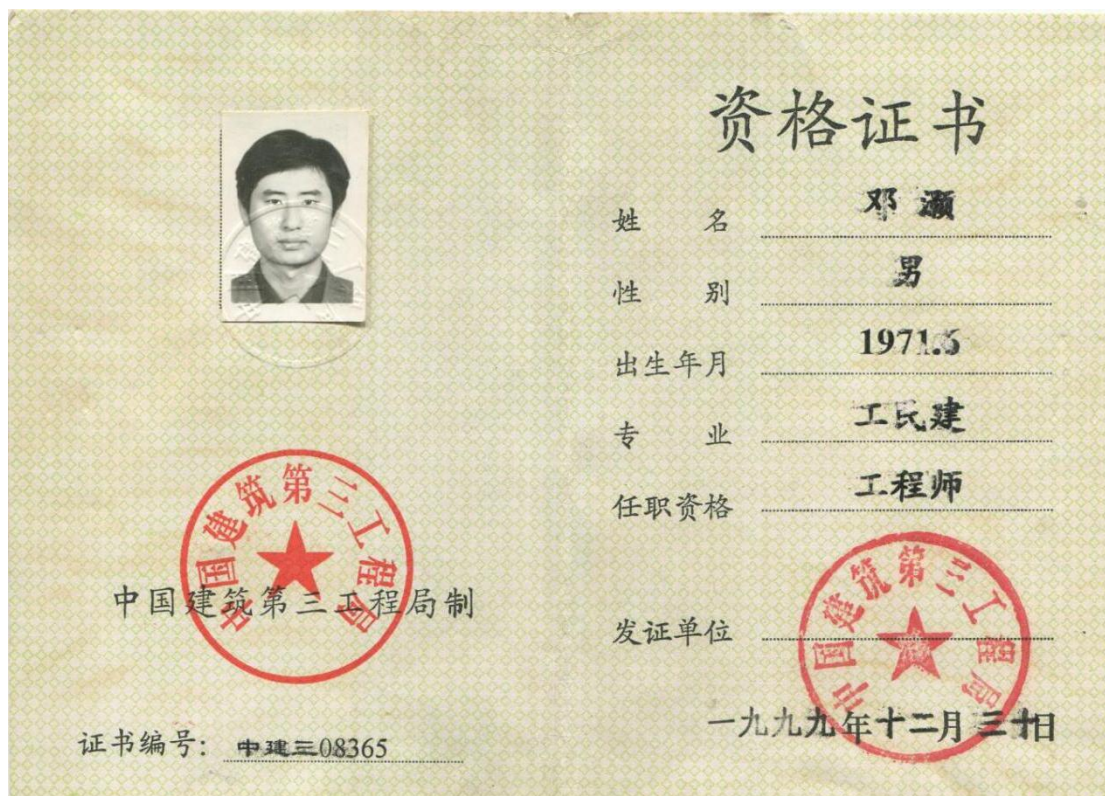 中国建筑第三工程局
中国建筑第三工程局制
证书编号: 中建三08365
资格证书
姓 名 邓灏
性 别 男
出生年月 1971.6
专 业 工民建
任职资格 工程师
发证单位
中国建筑第三工程局
一九九九年十二月三十日